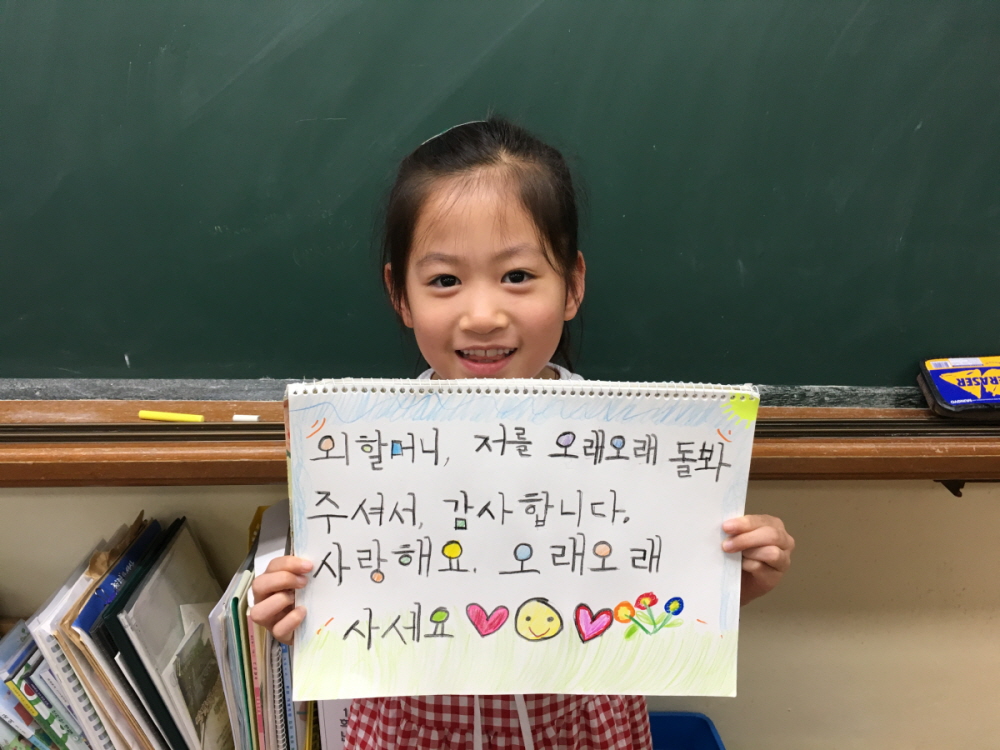 외할머니, 저를 오래오래 돌봐
주셔서, 감사합니다.
사랑해요. 오래오래
사세요
ERASER